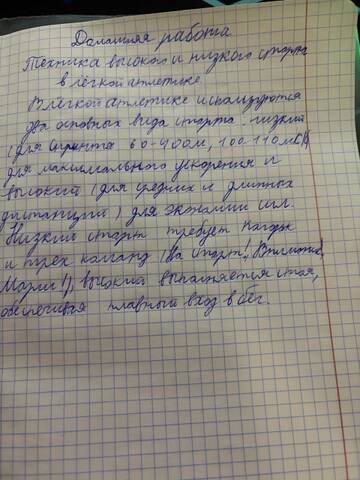 Домашняя работа
Техника высокого и низкого старта
в лёгкой атлетике.
В лёгкой атлетике используются
два основных вида старта: низкий
(для спринта 60-400м, 100-110м с/б)
для максимального ускорения и
высокий (для средних и длинных
дистанций) для экономии сил.
Низкий старт требует колодок
и трёх команд (На старт!, Внимание!,
Марш!), высокий выполняется стоя,
обеспечивая плавный вход в бег.